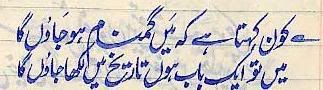 کون کہتا ہے کہ میں گمنام ہو جاؤں گا
میں تو ایک باب ہوں تاریخ میں لکھا جاؤں گا